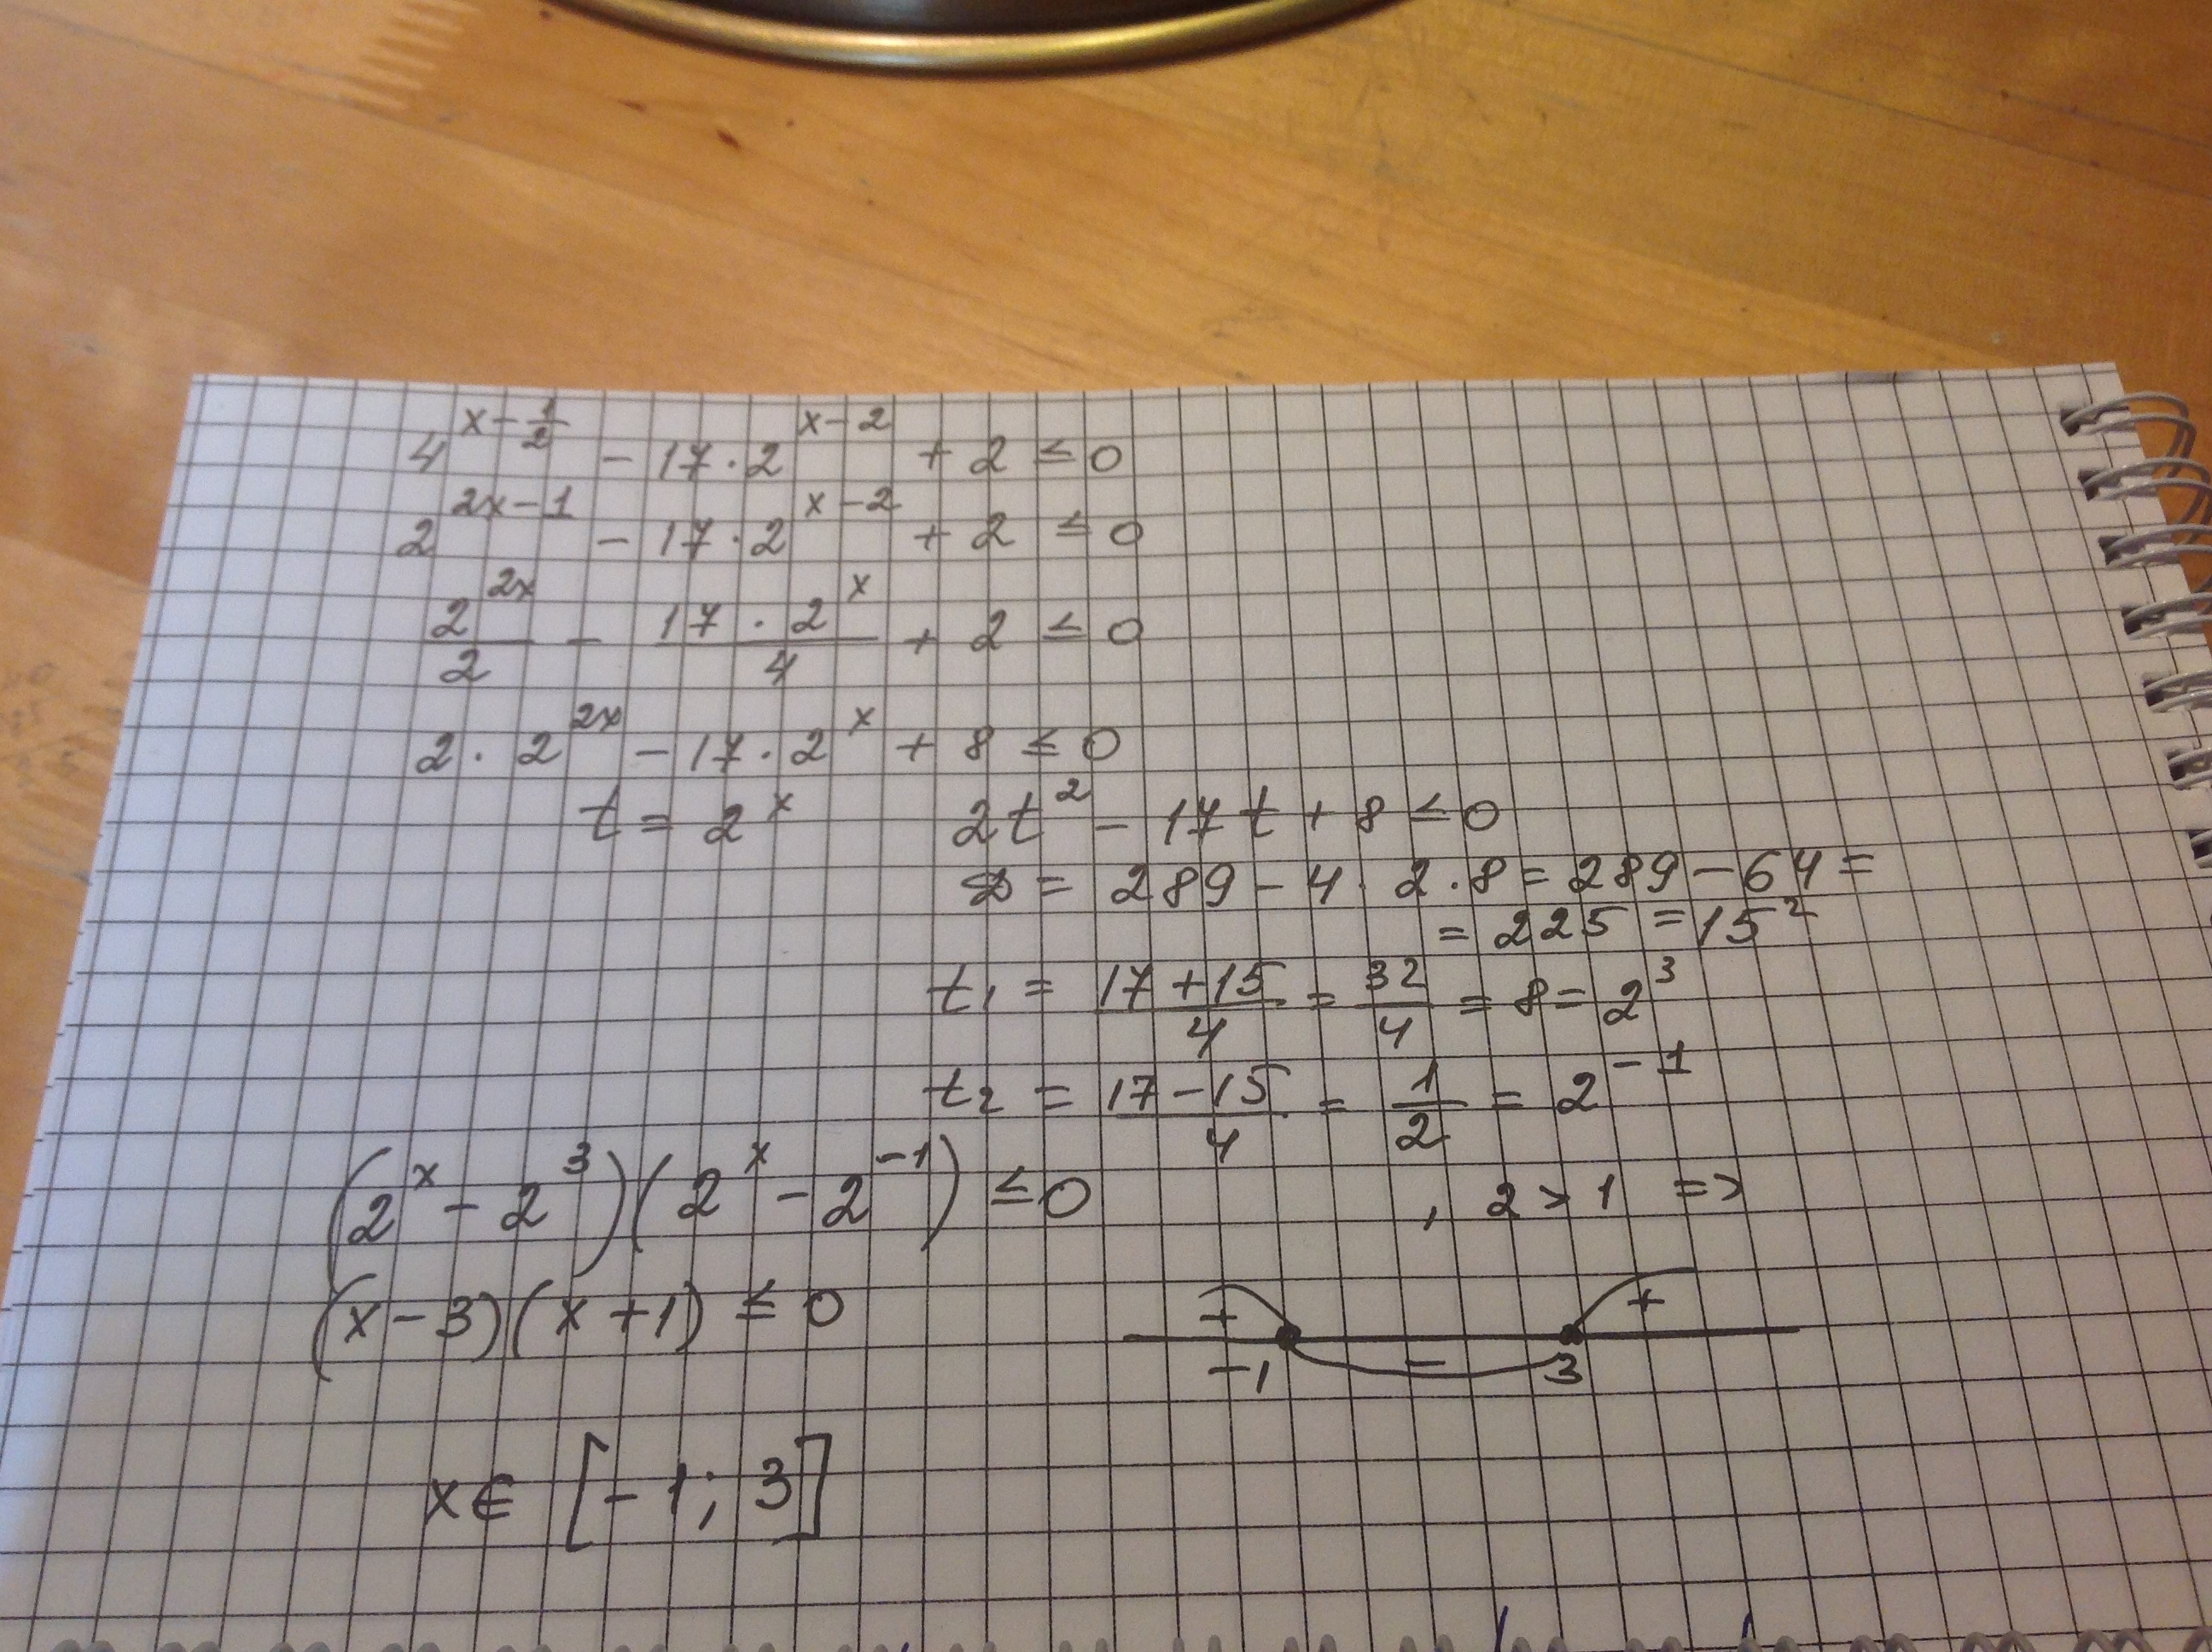 4^{x-\frac{1}{2}} - 17·2^{x-2} + 2 ≤ 0
2^{2x-1} - 17·2^{x-2} + 2 ≤ 0
\frac{2^{2x}}{2} - \frac{17·2^{x}}{4} + 2 ≤ 0
2·2^{2x} - 17·2^{x} + 8 ≤ 0
t = 2^{x} 2t^{2} - 17t + 8 ≤ 0
D = 289 - 4·2·8 = 289 - 64 =
= 225 = 15^{2}
t_{1} = \frac{17+15}{4} = \frac{32}{4} = 8 = 2^{3}
t_{2} = \frac{17-15}{4} = \frac{1}{2} = 2^{-1}
(2^{x} - 2^{3})(2^{x} - 2^{-1}) ≤ 0 , 2 > 1 =>
(x-3)(x+1) ≤ 0 + - +
-1 3
x ∈ [-1; 3]